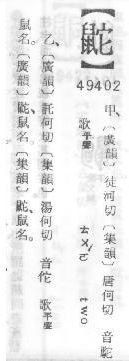 【鼧】
49402
甲、〔廣韻〕徒河切〔集韻〕唐何切 音駝
歌平聲 ㄊㄨㄛˊ two
乙、〔廣韻〕託何切〔集韻〕湯何切 音佗 歌平聲
鼠名。〔廣韻〕鼧鼠名〔集韻〕鼧、鼠名。